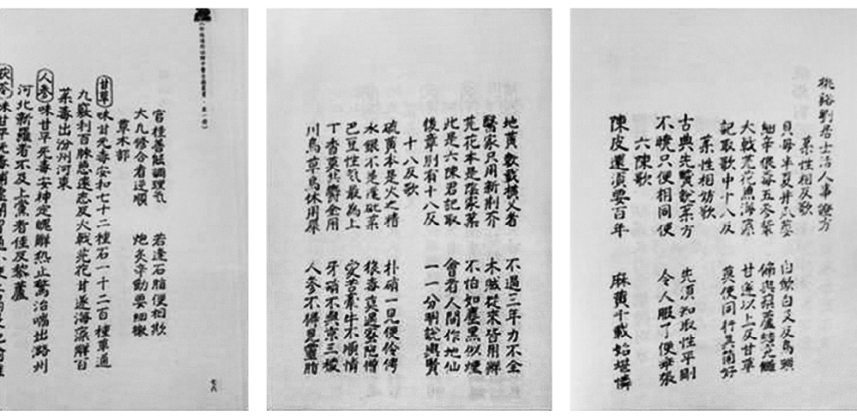 桃谿劉居士活人事證方
藥性相反歌
貝母半夏并瓜蔞 白歛白芨反烏頭
細辛五參 偏與藜蘆結冤讎
大戟芫花兼海藻 甘遂以上反甘草
記取歌中十八反 莫便同行真箇好
藥性相妨歌
古典先賢說藥方 先須知取性平剛
不曉只便相同使 令人服了便乖張
六陳歌
陳皮還須要百年 麻黃千載始堪憐
地黃數載橫父者 不過三年力不全
醫家只用新荆芥 木賊從來皆用鮮
芫花本是家葉 不怕如塵黑似煙
此是六陳君記取 會者人間作地仙
後章別有十八反 一一分明說與賢
十八反歌
硫黃本是火之精 朴硝一見便
水銀不是砒藥 狼毒莫遇密陀僧
巴豆性氣最為上 牽牛不順情
丁香莫共鬱金用 牙硝不與京三稜
川烏草烏休用犀 人參不得見靈脂
官桂善能調理氣 若逢石脂便相欺
大凡修合看逆順 炮炙辛勤要細
草木部
甘草味甘无毒安和七十二種石一十二百種草通
九竅利百脉忌遠志反大戟芫花甘遂海藻解百
藥毒出汾州河東
人參味甘平无毒安神定魄解熱止驚治喘出潞州
河北新羅者不及上黨者佳反藜蘆
茯苓味甘平无毒
七八